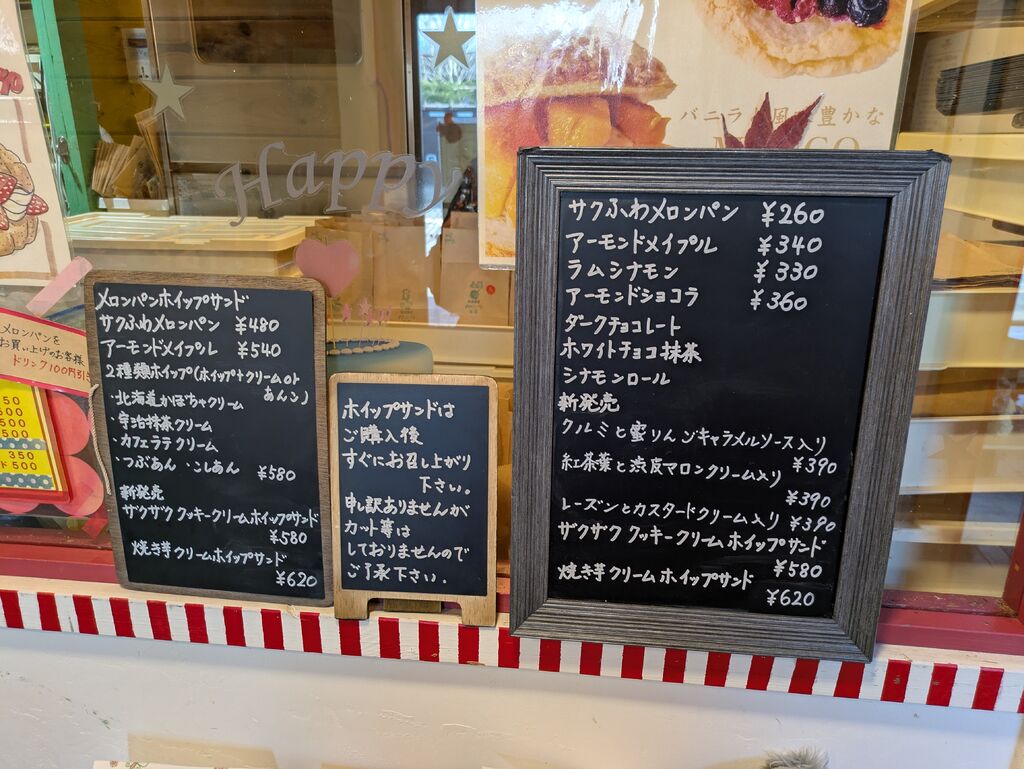 Happy
バニラ
豊かな
メロンパンを
お買い上げのお客様
ドリンク100円引き
350
500
メロンパンホイップサンド
サクふわメロンパン ¥480
アーモンドメイプル ¥540
2種類ホイップ(ホイップ+クリームor
あんこ)
・北海道かぼちゃクリーム
・宇治抹茶クリーム
・カフェラテクリーム
・つぶあん・こしあん ¥580
新発売
ザクザククッキークリームホイップサンド
¥580
焼き芋クリームホイップサンド
¥620
ホイップサンドは
ご購入後
すぐにお召し上がり
下さい。
申し訳ありませんが
カット等は
しておりませんので
ご了承下さい.
サクふわメロンパン ¥260
アーモンドメイプル ¥340
ラムシナモン ¥330
アーモンドショコラ ¥360
ダークチョコレート
ホワイトチョコ抹茶
シナモンロール
新発売
クルミと蜜りんごキャラメルソース入り
¥390
紅茶葉と渋皮マロンクリーム入り
¥390
レーズンとカスタードクリーム入り ¥390
ザクザククッキークリームホイップサンド
¥580
焼き芋クリームホイップサンド
¥620